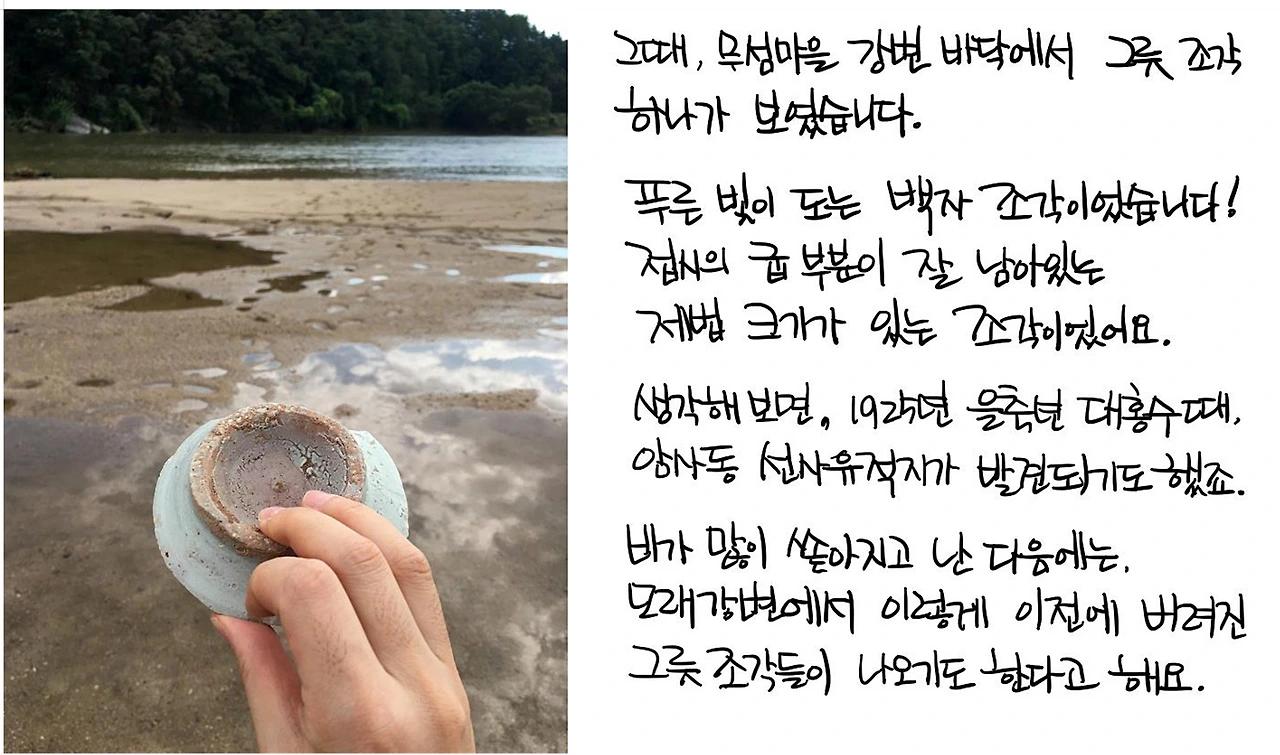 그때, 무섬마을 강변 바닥에서 그릇 조각
하나가 보였습니다.
푸른 빛이 도는 백자 조각이었습니다!
접시의 굽 부분이 잘 남아있는
제법 크기가 있는 조각이었어요.
생각해보면, 1925년 을축년 대홍수때,
암사동 선사유적지가 발견되기도 했죠.
비가 많이 쏟아지고 난 다음에는,
모래강변에서 이렇게 이전에 버려진
그릇 조각들이 나오기도 한다고 해요.